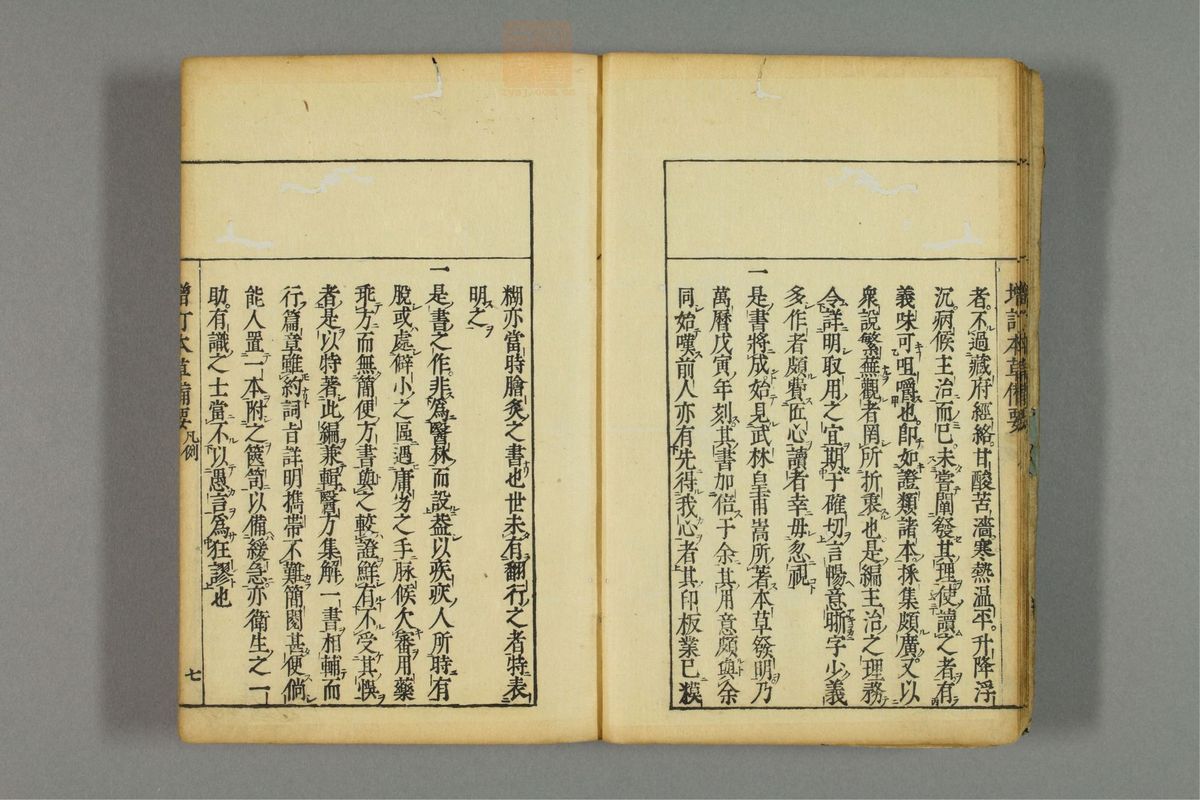 增訂本草備要
者不過藏府經絡甘酸苦濇寒熱温平升降浮
沉病候主治而已未嘗闡發其理使讀之者有
義味可咀嚼也即如證類諸本採集頗廣又以
衆說繁蕪觀者罔所折衷也是編主治之理務
令詳明取用之宜期于確切言暢意晰字少義
多作者頗費匠心讀者幸毋忽視
一是書將成始見武林皇甫嵩所著本草發明乃
萬曆戊寅年刻其書加倍于余其用意頗與余
同始嘆前人亦有先得我心者其印板業已糢
糊亦當時膾炙之書也世未有翻行之者特表
明之
一是書之作非爲醫林而設葢以疾疢人所時有
脫或處僻小之區遇庸劣之手脉候欠審用藥
乖方而無簡便方書與之較證鮮有不受其悞
者是以特著此編兼輯醫方集解一書相輔而
行篇章雖約詞旨詳明攜帶不難簡閱甚便倘
能人置一本附之篋笥以備緩急亦衛生之一
助有識之士當不以愚言爲狂謬也
增訂本草備要 凡例 七